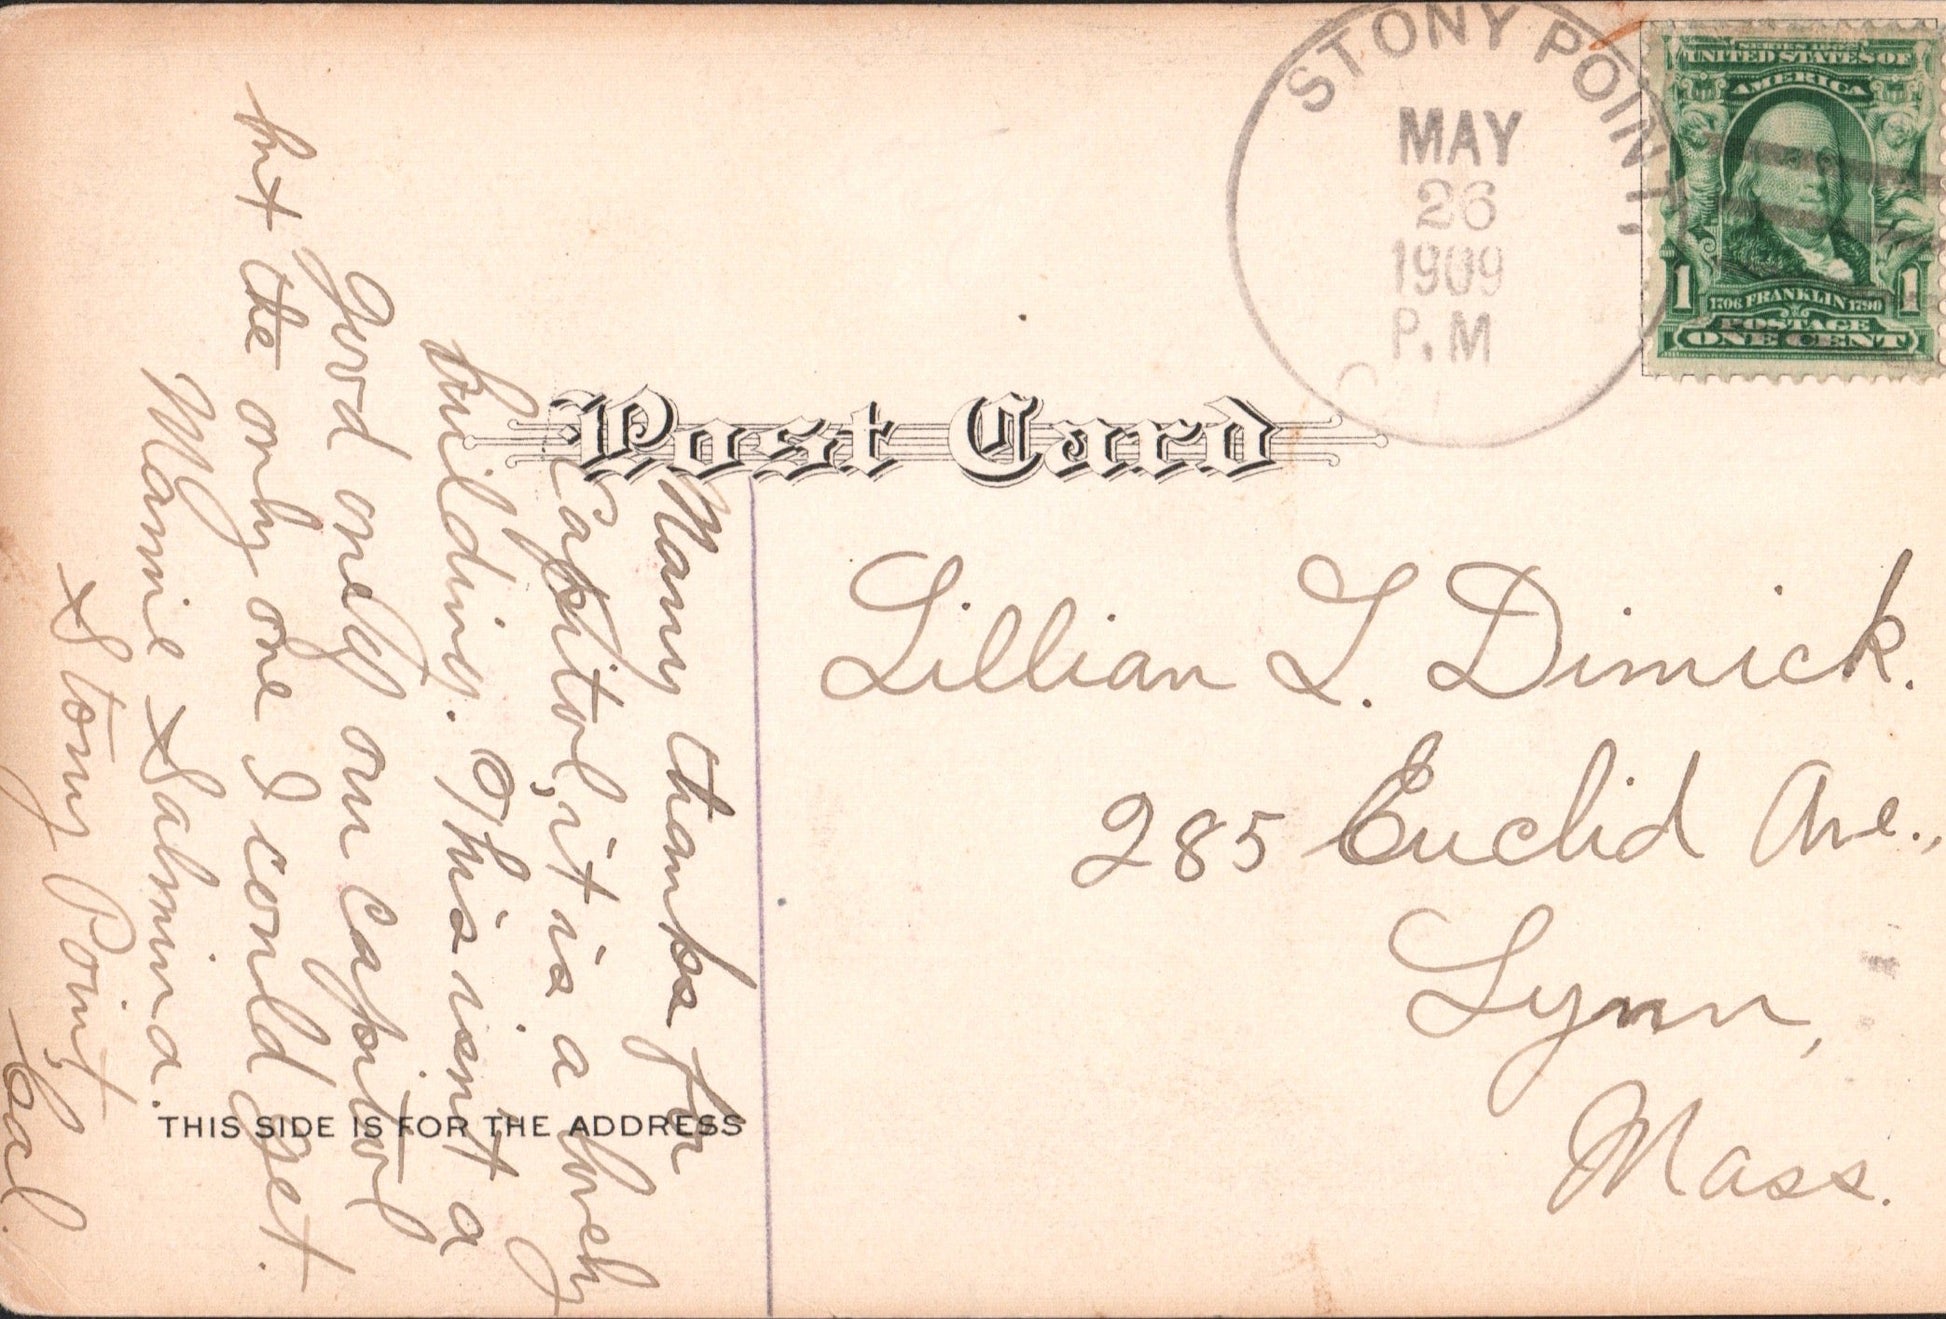 STONY POINT,
MAY
26
1909
P.M
SERIES 1902
UNITED STATES OF
AMERICA
1 1706 FRANKLIN 1790 1
POSTAGE
ONE CENT
Post Card
Many thanks for
Capitol, it is a lovely
building. This isn't a
good one of our capitol
but the only one I could get.
Mamie Salmina.
Stony Point,
Cal.
Lillian L. Dimick.
285 Euclid Ave.,
Lynn,
Mass.
THIS SIDE IS FOR THE ADDRESS